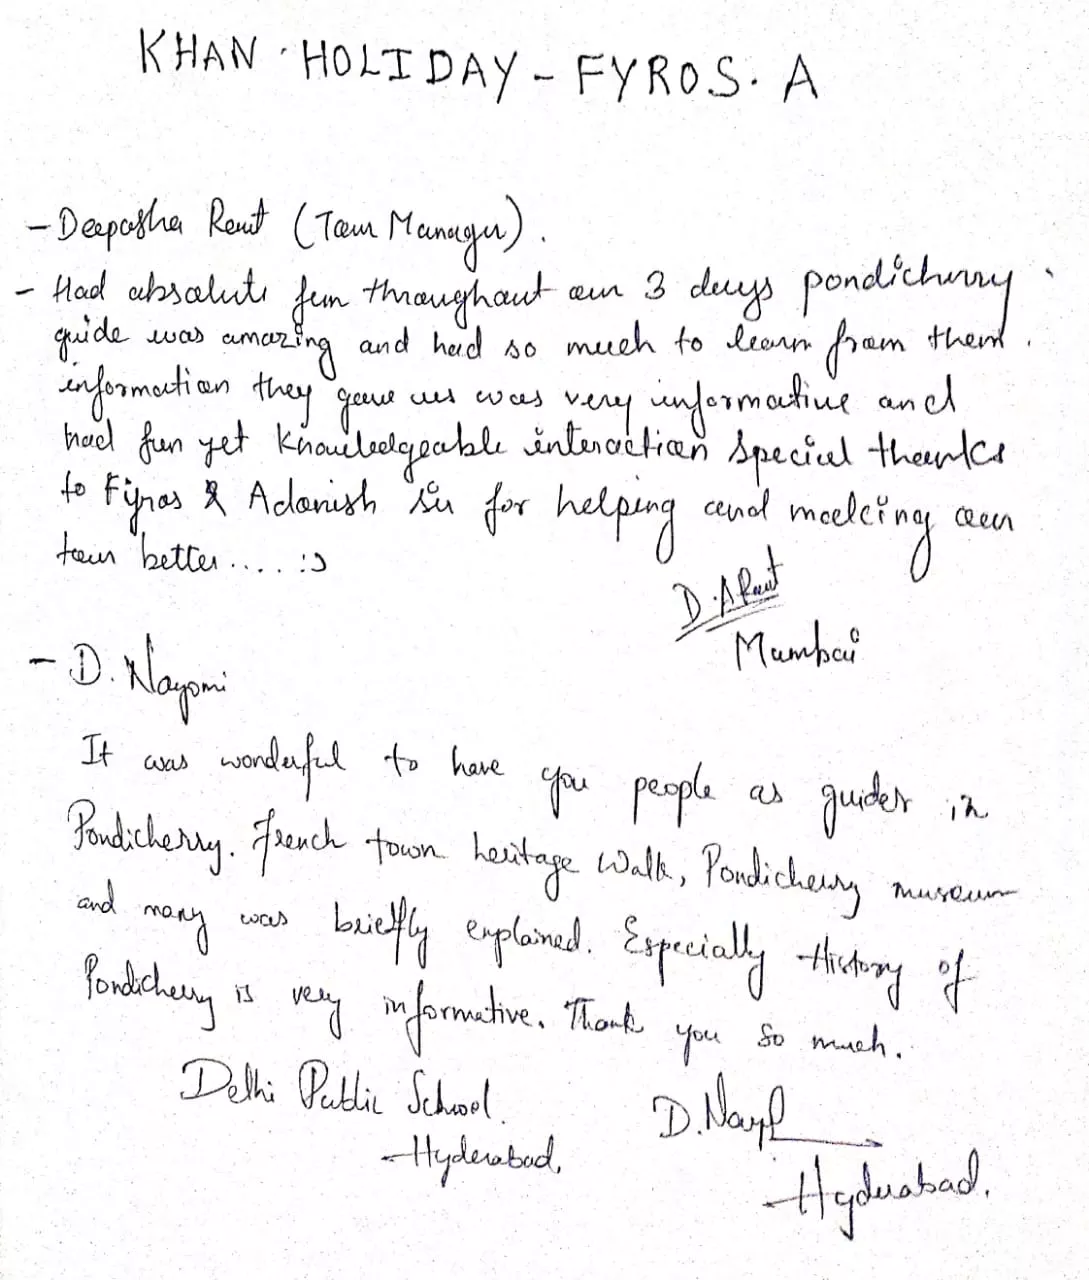 KHAN HOLIDAY - FYROS. A
- Deepasha Raut (Tour Manager).
- Had absolute fun throughout our 3 days pondicherry
guide was amazing and had so much to learn from them.
information they gave us was very informative and
had fun yet knowledgeable interaction special thanks
to Fyros & Adanish sir for helping and making our
tour better.... :)
D.A Raut
Mumbai
- D. Nayomi
It was wonderful to have you people as guides in
Pondicherry. French town heritage walk, Pondicherry museum
and many was briefly explained. Especially History of
Pondicherry is very informative. Thank you so much.
Delhi Public School.
- Hyderabad.
D. Nay
Hyderabad.